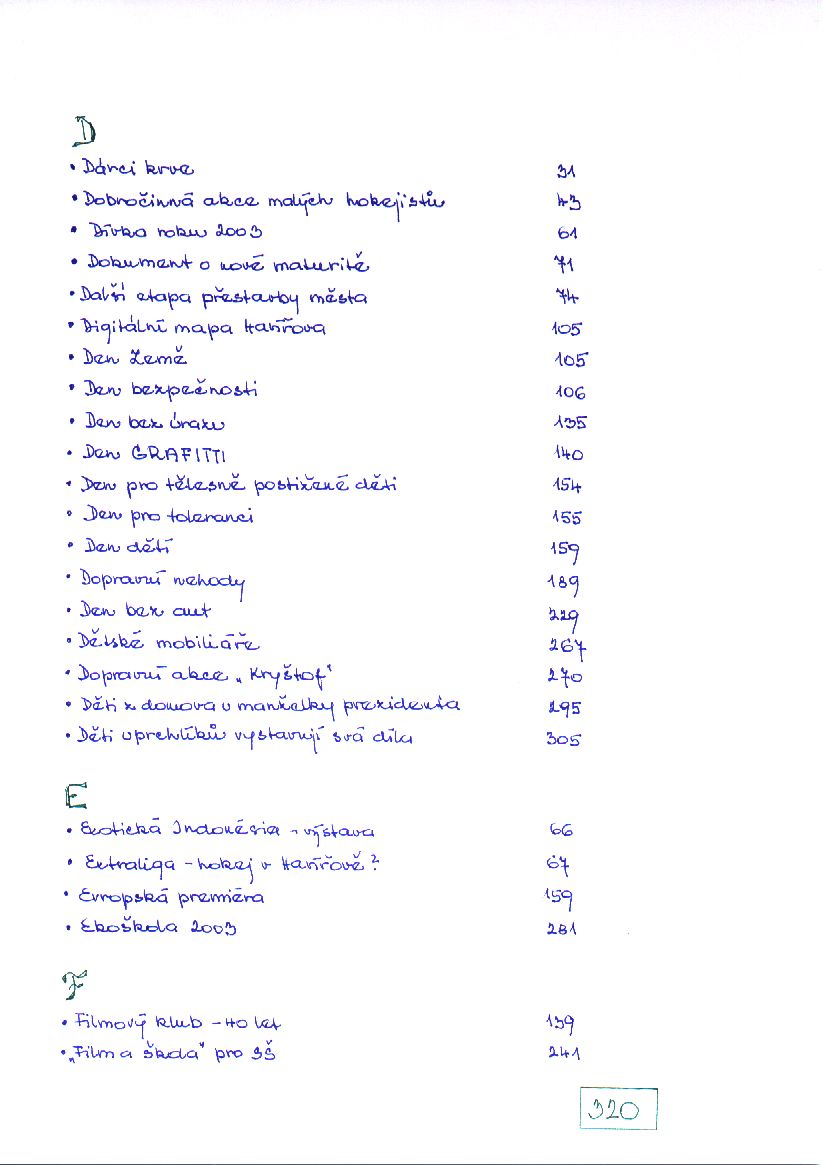 D
• Dárci krve 31
• Dobročinná akce malých hokejistů 43
• Dívka roku 2003 61
• Dokument o nové maturitě 71
• Další etapa přestavby města 74
• Digitální mapa Havířova 105
• Den Země 105
• Den bezpečnosti 106
• Den bez úrazu 135
• Den GRAFITTI 140
• Den pro tělesně postižené děti 154
• Den pro toleranci 155
• Den dětí 159
• Dopravní nehody 189
• Den bez aut 229
• Dětské mobiliáře 267
• Dopravní akce „Kryštof" 270
• Děti z domova u manželky prezidenta 295
• Děti uprchlíků vystavují svá díla 305
E
• Exotická Indonésia - výstava 66
• Extraliga - hokej v Havířově? 67
• Evropská premiéra 159
• Ekoškola 2003 281
F
• Filmový klub - 40 let 139
• „Film a škola" pro SŠ 241
320